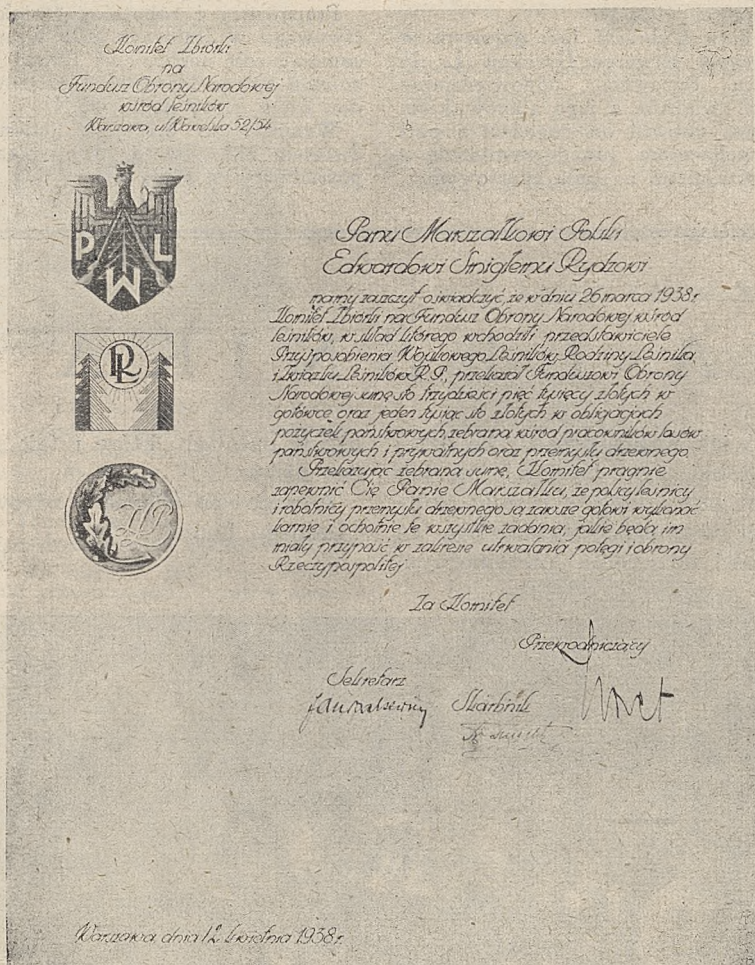 Komitet Zbiórki
na
Fundusz Obrony Narodowej
wśród leśników
Warszawa, ul. Wawelska 52/54
P W L
RL
ZL
Panu Marszałkowi Polski
Edwardowi Śmigłemu Rydzowi
mamy zaszczyt oświadczyć, że w dniu 26 marca 1938 r.
Komitet Zbiórki na Fundusz Obrony Narodowej wśród
leśników, w skład którego wchodzili przedstawiciele
Przysposobienia Wojskowego Leśników, Rodziny Leśnika
i Związku Leśników R.P., przekazał Funduszowi Obrony
Narodowej sumę sto trzydzieści pięć tysięcy złotych w
gotówce oraz jeden tysiąc sto złotych w obligacjach
pożyczek państwowych, zebraną wśród pracowników lasów
państwowych i prywatnych oraz przemysłu drzewnego.
Przekazując zebraną sumę, Komitet pragnie
zapewnić Cię Panie Marszałku, że polscy leśnicy
i robotnicy przemysłu drzewnego są zawsze gotowi wykonać
karnie i ochotnie te wszystkie zadania, jakie będą im
miały przypaść w zakresie utrwalania potęgi i obrony
Rzeczypospolitej
Za Komitet
Przewodniczący
Sekretarz
Skarbnik
Warszawa dnia 12 kwietnia 1938 r.